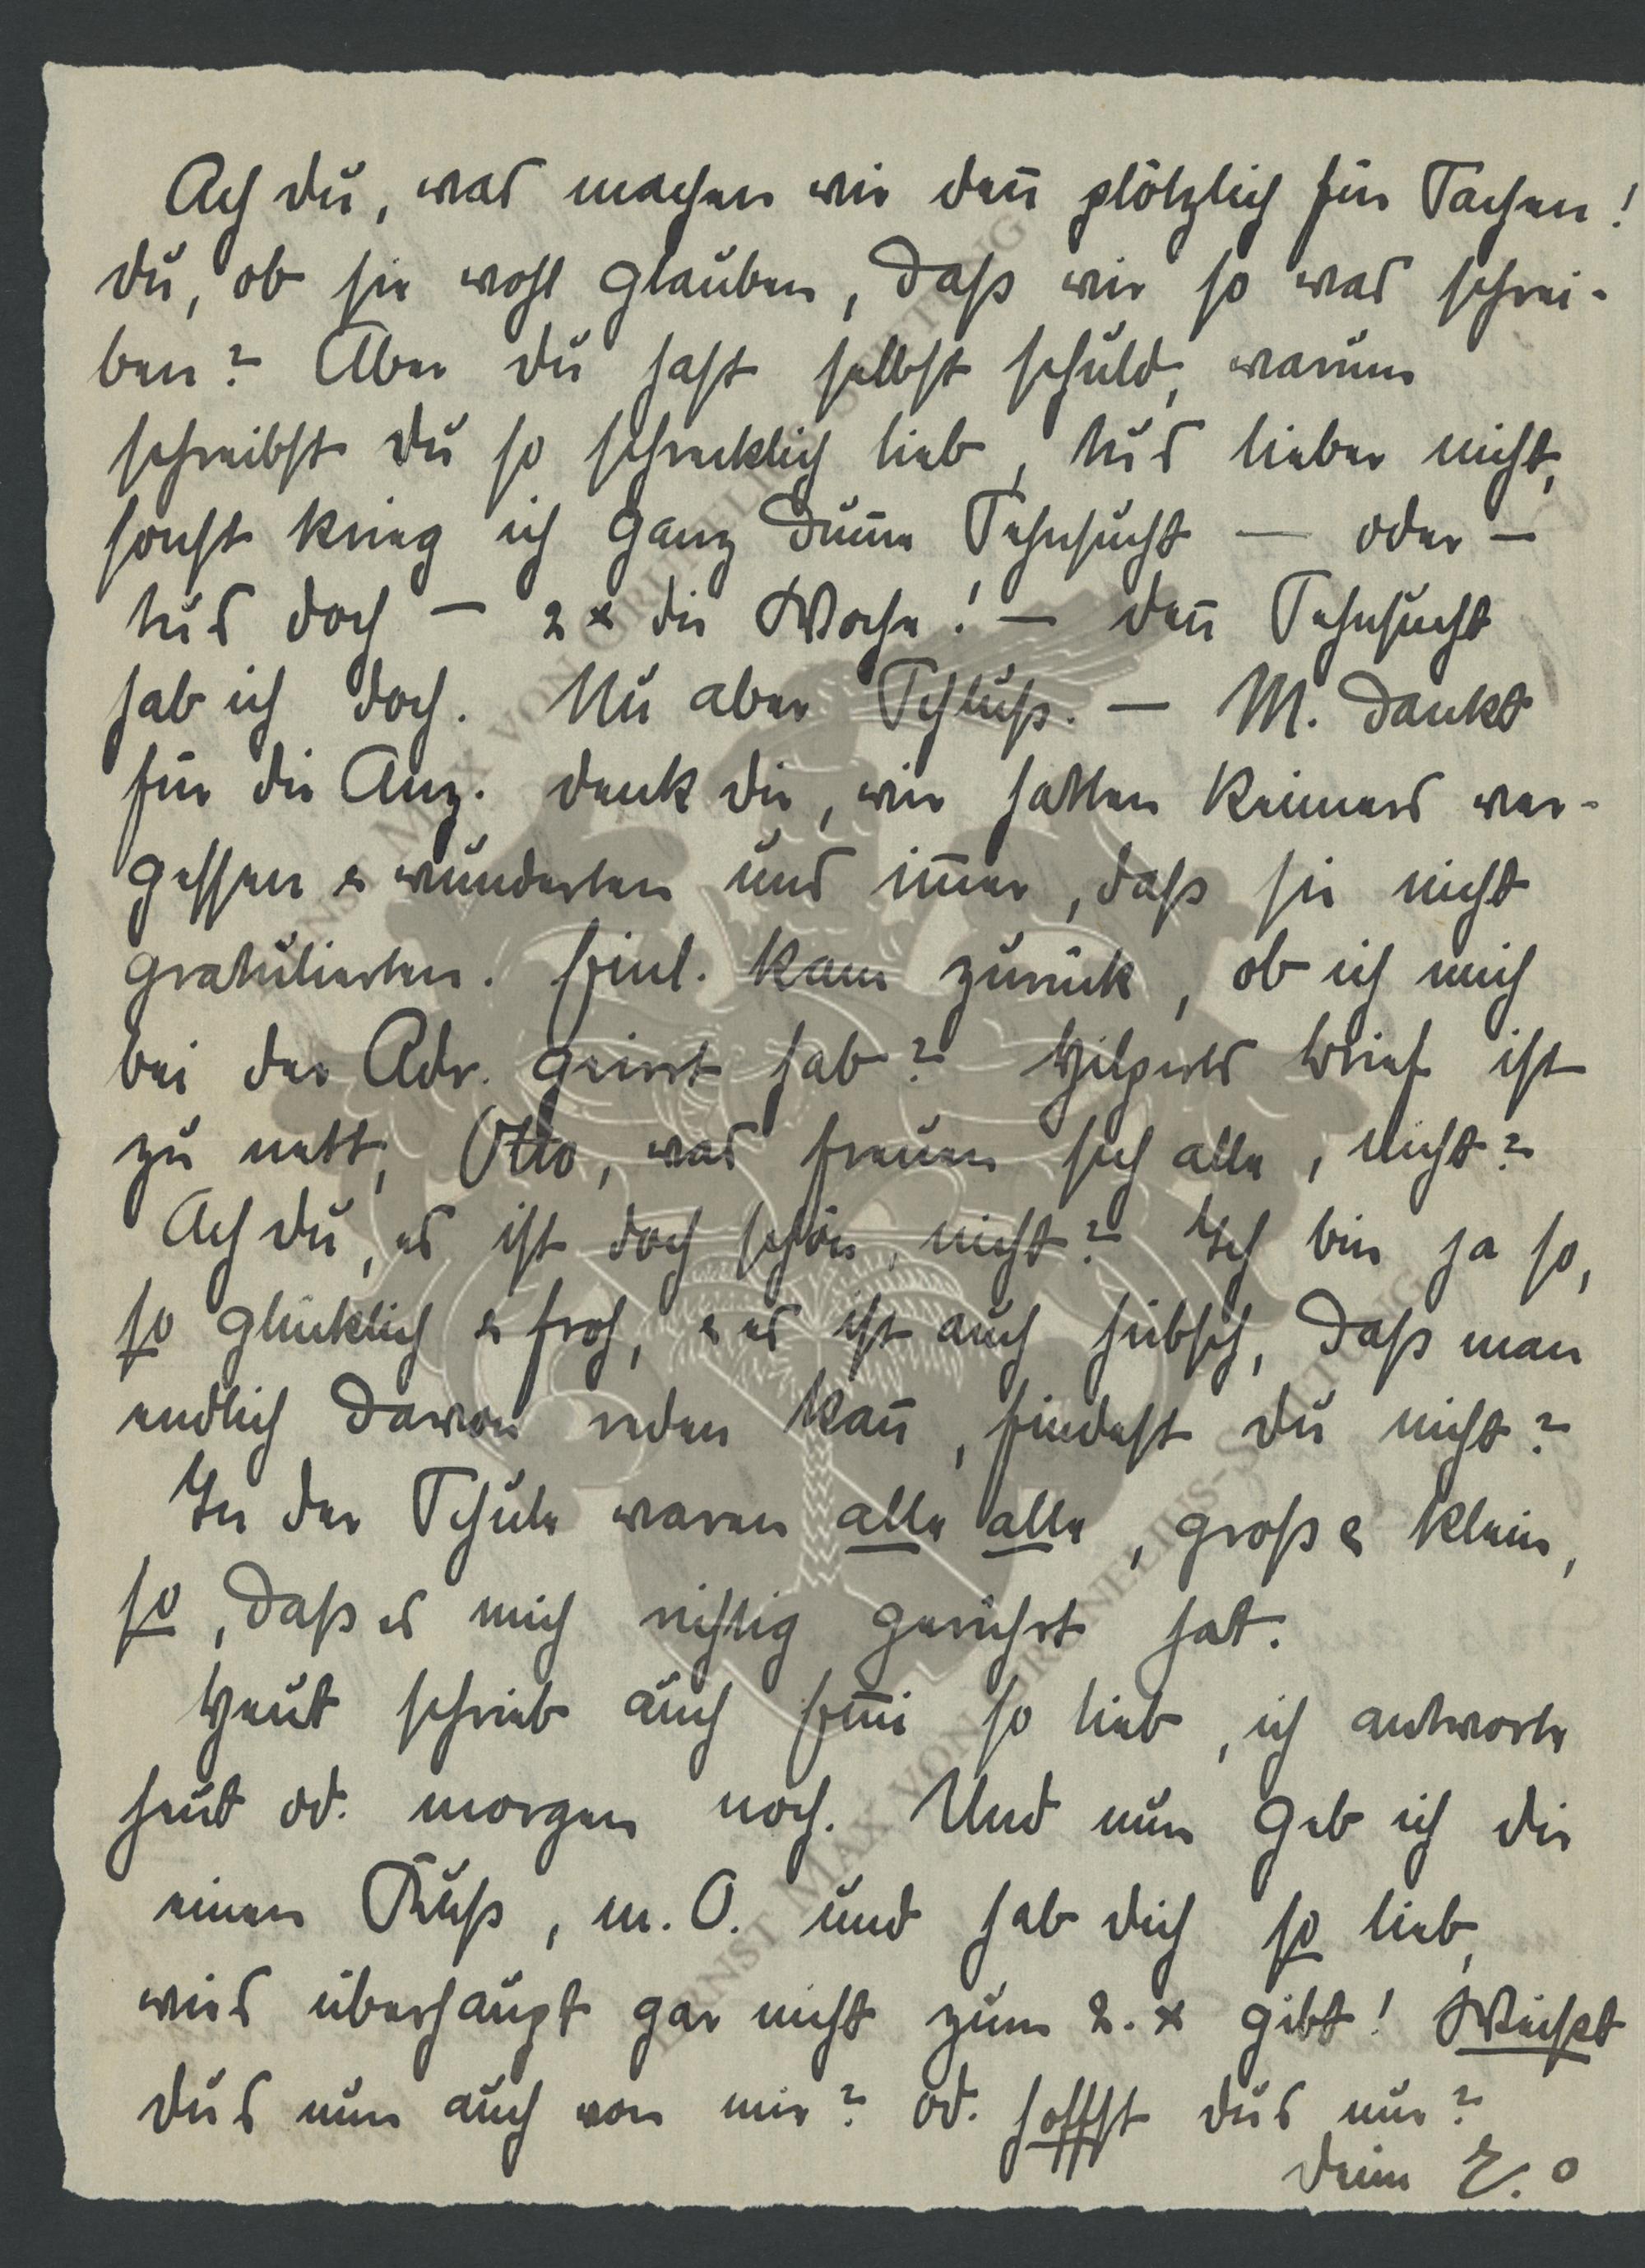 Ach du, was machen wir deñ plötzlich für Sachen!
du, ob sie wohl glauben, daß wir so was schrei-
ben? Aber du hast selbst schuld, warum
schreibst du so schrecklich lieb, tus lieber nicht,
sonst krieg ich ganz dum̄e Sehnsucht — oder —
tus doch — 2 x die Woche! — deñ Sehnsucht
hab ich doch. Nu aber Schluß. — M. dankt
für die Anz. denk dir, wir hatten Reimers ver-
gessen & wunderten uns im̄er, daß sie nicht
gratulierten. Einl. kam zurück, ob ich mich
bei der Adr. geirrt hab? Hilperts Brief ist
zu nett, Otto, was freuen sich alle, nicht?
Ach du, es ist doch schön, nicht? Ich bin ja so,
so glücklich & froh, & es ist auch hübsch, daß man
endlich davon reden kañ, findest du nicht?
In der Schule waren alle alle, groß & klein,
so, daß es mich richtig gerührt hat.
Heut schrieb auch Em̄i so lieb, ich antworte
heut od. morgen noch. Und nun geb ich dir
einen Kuß, m. O. und hab dich so lieb,
wies überhaupt gar nicht zum 2. x gibt! Weißt
dus nun auch von mir? od. hoffst dus nur?
dein E.
ERNST MAX VON GRUNELIUS-STIFTUNG
ERNST MAX VON GRUNELIUS-STIFTUNG